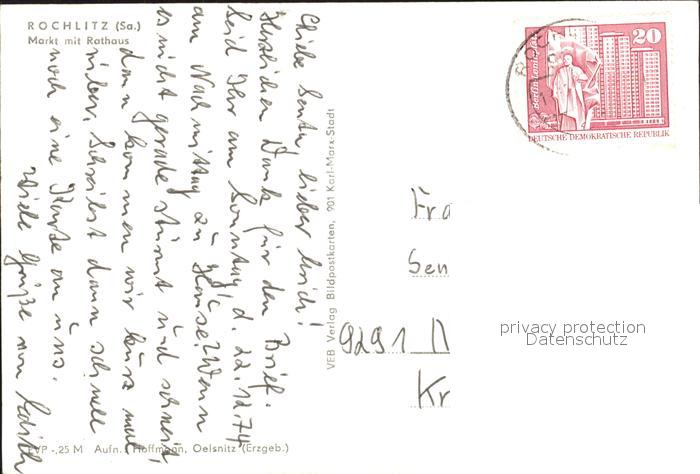 ROCHLITZ (Sa.)
Markt mit Rathaus
Liebe Senta, lieber Erich!
Herzlichen Dank für den Brief.
Seid Ihr am Sonntag, d. 22.12.74
am Nachmittag zu Hause? Wenn
es nicht gerade stürmt und schneit,
dann kommen wir kurz mal
rüber. Schreibst dann schnell
noch eine Karte an uns.
Viele Grüße von Edith
EVP -,25 M Aufn.: Hoffmann, Oelsnitz (Erzgeb.)
VEB Verlag Bildpostkarten, 901 Karl-Marx-Stadt
20
Berlin
DEUTSCHE DEMOKRATISCHE REPUBLIK
Fra
Sen
9291
Kr
privacy protection
Datenschutz